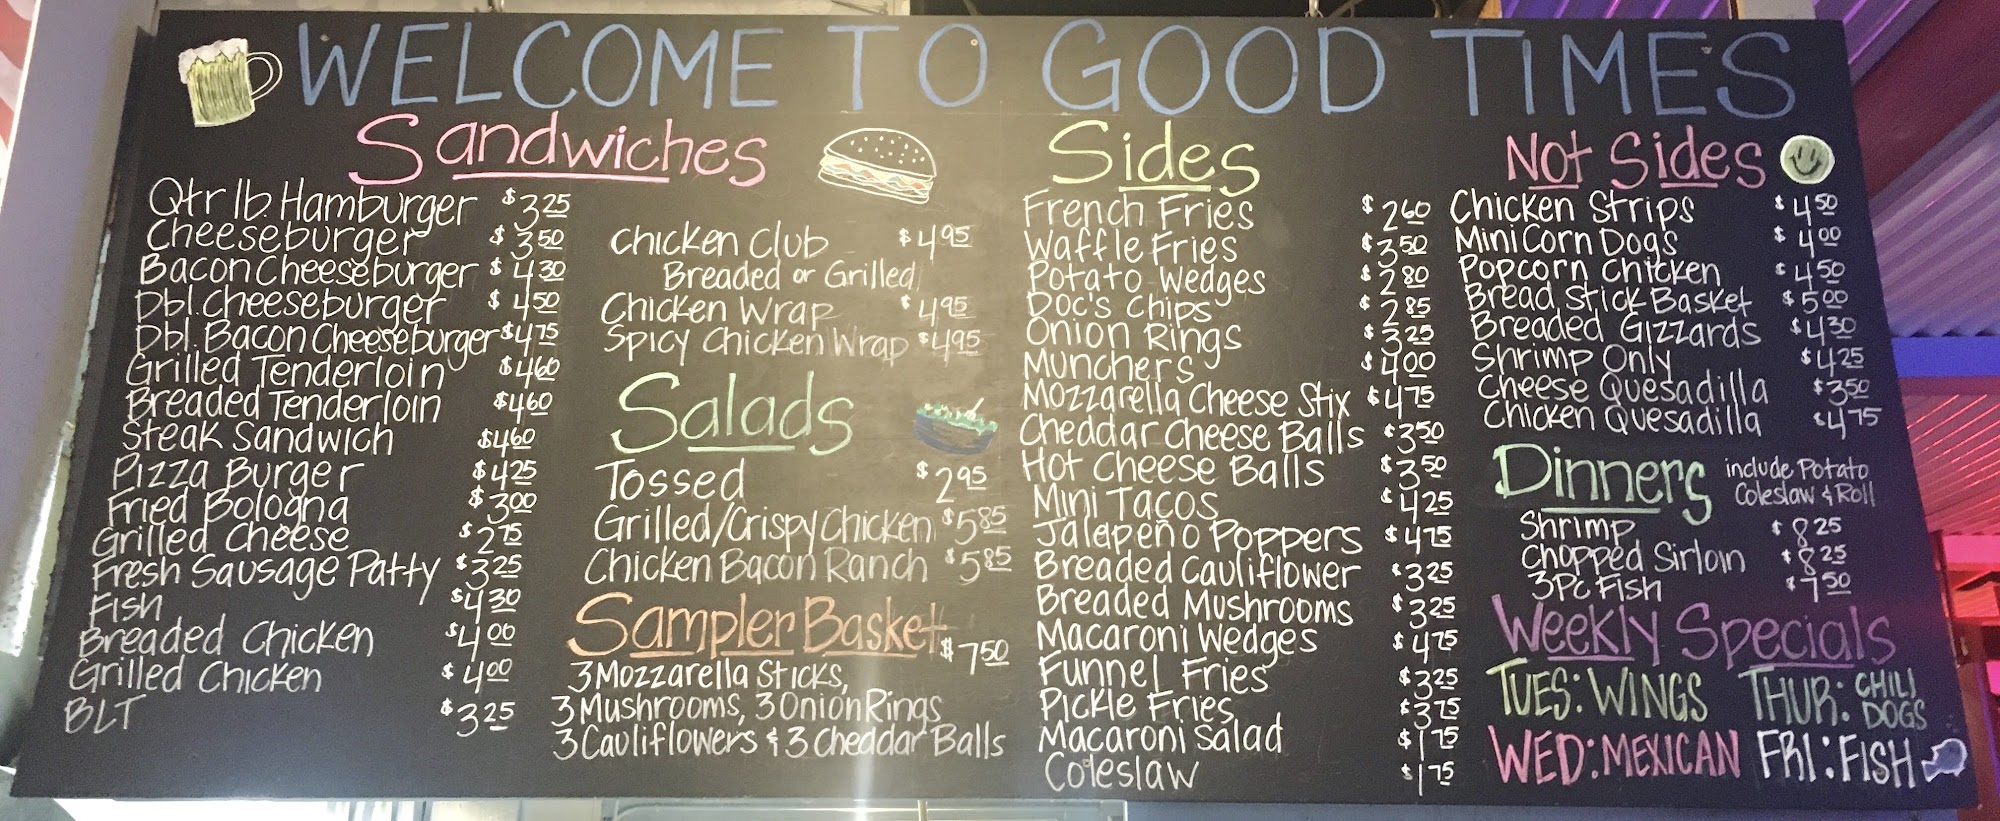 WELCOME TO GOOD TIMES
Sandwiches
Qtr lb. Hamburger $3.25
Cheeseburger $3.50
Bacon Cheeseburger $4.30
Dbl. Cheeseburger $4.50
Dbl. Bacon Cheeseburger $4.75
Grilled Tenderloin $4.60
Breaded Tenderloin $4.60
Steak Sandwich $4.60
Pizza Burger $4.25
Fried Bologna $3.00
Grilled Cheese $2.75
Fresh Sausage Patty $3.25
Fish $4.30
Breaded Chicken $4.00
Grilled Chicken $4.00
BLT $3.25
Chicken Club $4.95
Breaded or Grilled
Chicken Wrap $4.95
Spicy Chicken Wrap $4.95
Salads
Tossed $2.95
Grilled/Crispy Chicken $5.85
Chicken Bacon Ranch $5.85
Sampler Basket $7.50
3 Mozzarella Sticks,
3 Mushrooms, 3 Onion Rings
3 Cauliflowers & 3 Cheddar Balls
Sides
French Fries $2.60
Waffle Fries $3.50
Potato Wedges $2.80
Doc's Chips $2.85
Onion Rings $3.25
Munchers $4.00
Mozzarella Cheese Stix $4.75
Cheddar Cheese Balls $3.50
Hot Cheese Balls $3.50
Mini Tacos $4.25
Jalapeño Poppers $4.75
Breaded Cauliflower $3.25
Breaded Mushrooms $3.25
Macaroni Wedges $4.75
Funnel Fries $3.25
Pickle Fries $3.75
Macaroni Salad $1.75
Coleslaw $1.75
Not Sides
Chicken Strips $4.50
Mini Corn Dogs $4.00
Popcorn Chicken $4.50
Bread Stick Basket $5.00
Breaded Gizzards $4.30
Shrimp Only $4.25
Cheese Quesadilla $3.50
Chicken Quesadilla $4.75
Dinners include Potato
Coleslaw & Roll
Shrimp $8.25
Chopped Sirloin $8.25
3 Pc Fish $7.50
Weekly Specials
TUES: WINGS
WED: MEXICAN
THUR: CHILI DOGS
FRI: FISH